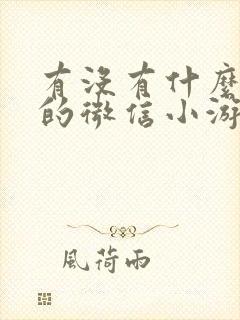 有没有什麼
的微信小游
風荷雨